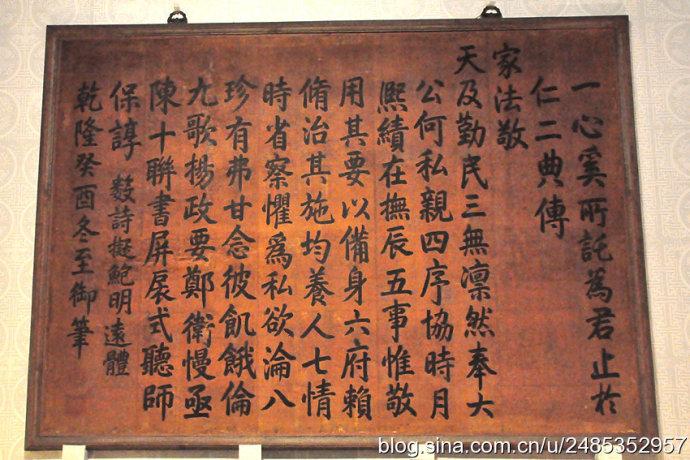 一心奚所託為君止於
仁二典傳
家法敬
天及勤民三無凜然奉六
公何私親四序協時月
熈績在撫辰五事惟敬
用其要以備身六府賴
脩治其施均養人七情
時省察懼為私欲淪八
珍有弗甘念彼飢餓倫
九歌揚政要鄭衛慢亟
陳十聯書屏扆式聽師
保諄 數詩擬鮑明遠體
乾隆癸酉冬至御筆
blog.sina.com.cn/u/2485352957